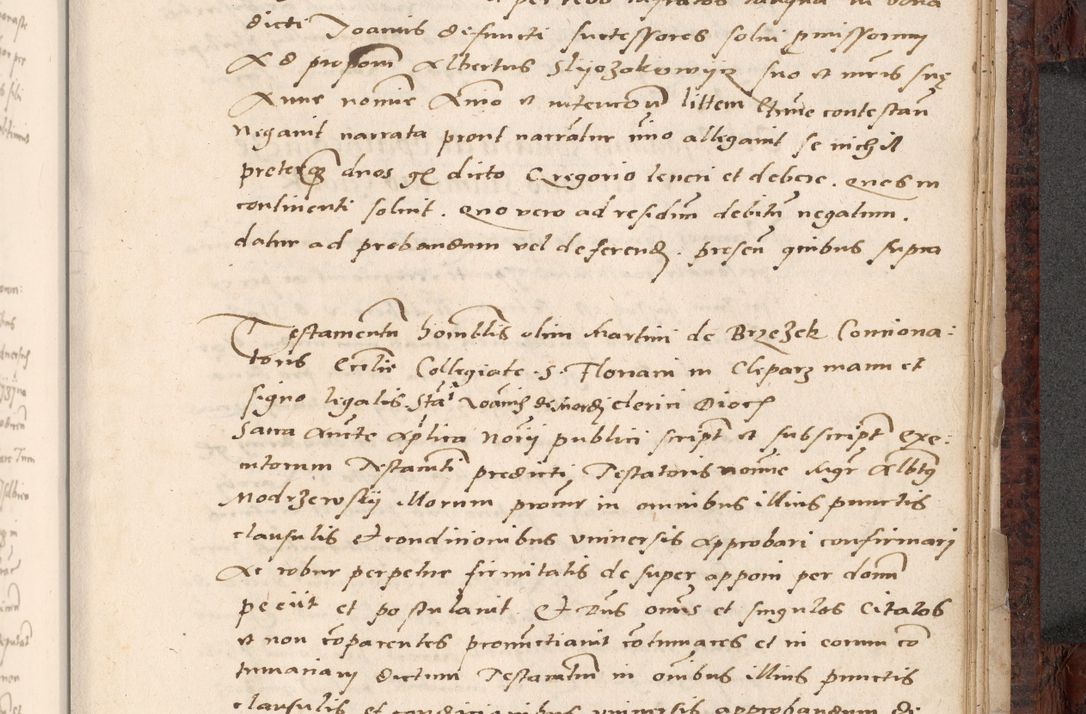 dicti Joannis defuncti successores solvi p̄missorum
Ad propom̄ Albertus Slyozokowyz suo et mr̄is sue
Anne nomīe Anīo et intencōn littem līt̄ime contestan̄
Negavit narrata prout narrātur īmo allegavit se nichil
preterq̄ duos gl dicto Gregorio teneri et debere. Quos in
continenti solvit. Quo vero ad residūm debitū negatum.
datur ad probandum vel deferend. presen̄ quibus supra
Testamentū honblis olim Martini de Brzezek Conciona:
toris Ecclīe Collegiate S. Floriani in Cleparz manu et
signo legalis Joānis clerici Dioc
Sacra Aucte Aplica Norij publici script et subscript exe:
cutorum Testamti predicti Testatoris nomīe Mgr Albtg
Modrzewskij illorum procur in omnibus illius punctis
clausulis et condicionibus universis Approbari confirmari
Ac robur perpetue firmitatis desuper apponi per domī
peciit et postulavit. Et Dns omīs et singulos Citatos
et non cōparentes pronunctiavit cōtumaces et in eorum cō
tumaciam dictum Testamtum in oībus illius punctis
clausulis et condicionibus universis approbandum